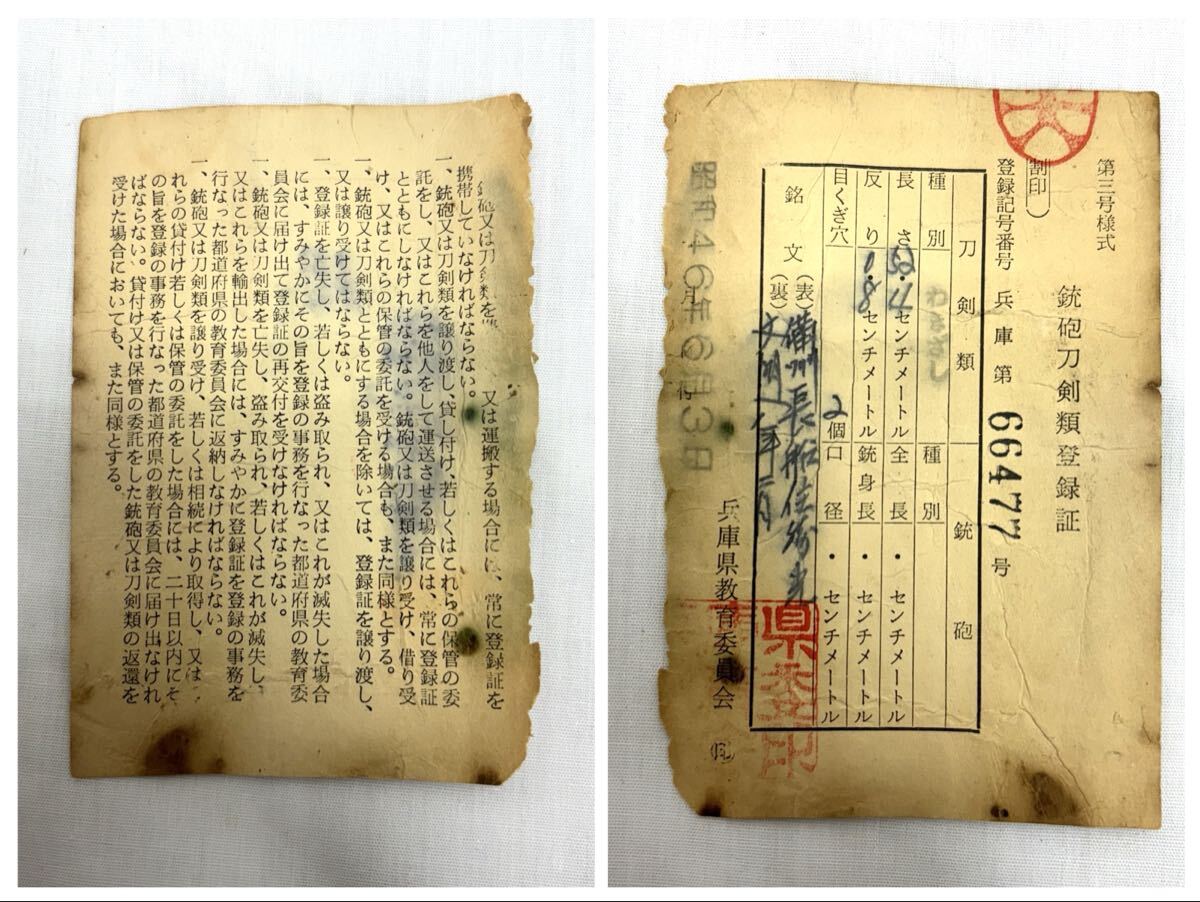 又は運搬する場合には、常に登録証を
携帯していなければならない。
一、銃砲又は刀剣類を譲り渡し、貸し付け、若しくはこれらの保管の委
託をし、又はこれらを他人をして運送させる場合には、常に登録証
とともにしなければならない。銃砲又は刀剣類を譲り受け、借り受
け、又はこれらの保管の委託を受ける場合も、また同様とする。
一、銃砲又は刀剣類とともにする場合を除いては、登録証を譲り渡し、
又は譲り受けてはならない。
一、登録証を亡失し、若しくは盗み取られ、又はこれが滅失した場合
には、すみやかにその旨を登録の事務を行なった都道府県の教育委
員会に届け出て登録証の再交付を受けなければならない。
一、銃砲又は刀剣類を亡失し、盗み取られ、若しくはこれが滅失し、
又はこれらを輸出した場合には、すみやかに登録証を登録の事務を
行なった都道府県の教育委員会に返納しなければならない。
一、銃砲又は刀剣類を譲り受け、若しくは相続により取得し、又はこ
れらの貸付け若しくは保管の委託をした場合には、二十日以内にそ
の旨を登録の事務を行なった都道府県の教育委員会に届け出なけれ
ばならない。貸付け又は保管の委託をした銃砲又は刀剣類の返還を
受けた場合においても、また同様とする。
第三号様式
銃砲刀剣類登録証
(割印)
登録記号番号 兵庫第 66477 号
刀剣類 銃砲
種別 わきざし 種別
長さ 52.4 センチメートル 全長 ・ センチメートル
反り 1.8 センチメートル 銃身長 ・ センチメートル
目くぎ穴 2個 口径 ・ センチメートル
銘文 (表) 備州長船住勝光
(裏) 文明八年二月
昭和46年6月3日
月 付
兵庫県教育委員会 ㊞